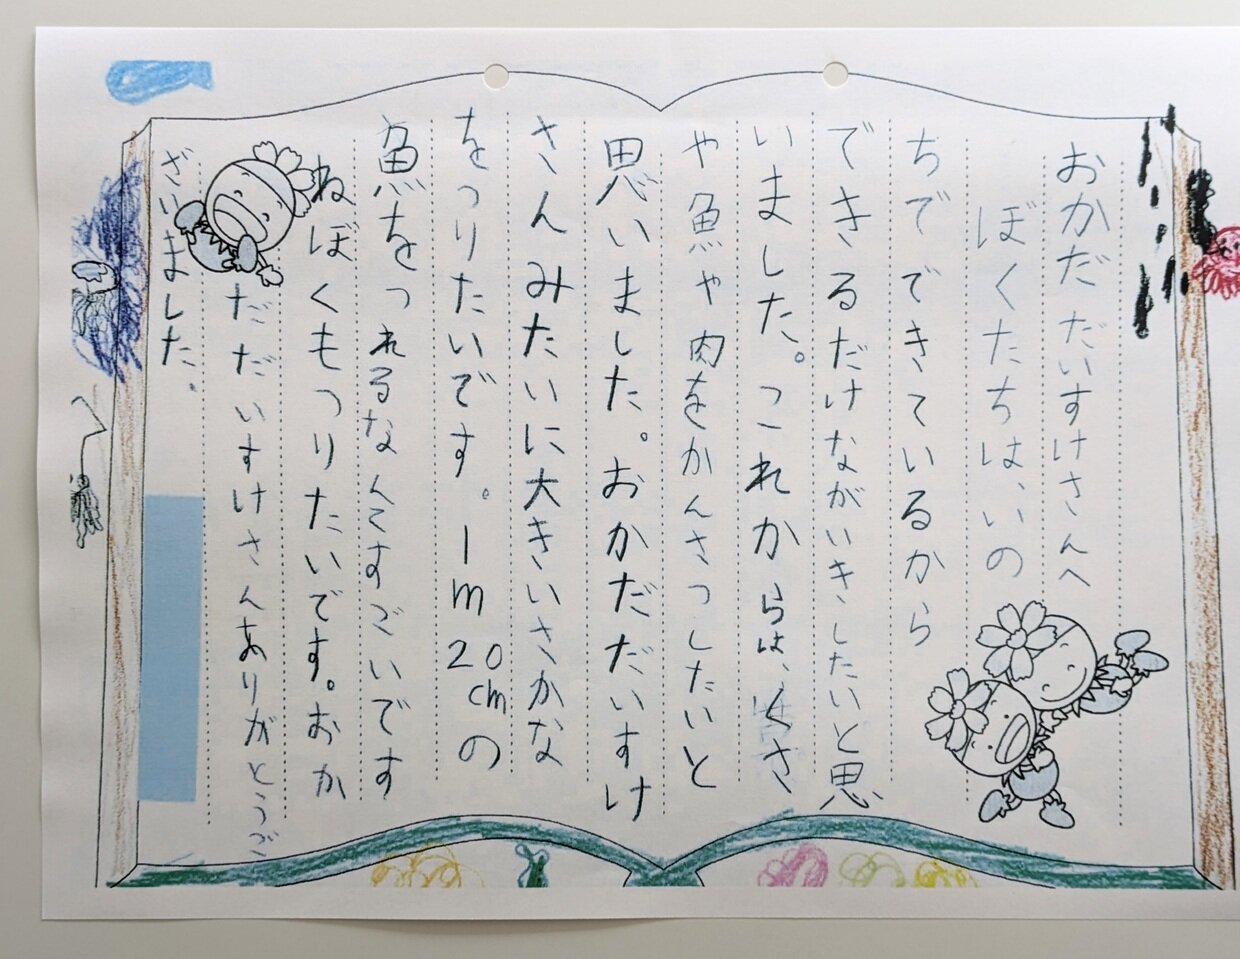 おかだ だいすけさんへ
ぼくたちは、いの
ちでできているから
できるだけながいきしたいと思
いました。これからは、くさ
や魚や肉をかんさつしたいと
思いました。おかだだいすけ
さんみたいに大きいさかな
をつりたいです。1m20cmの
魚をつれるなんてすごいです
ねぼくもつりたいです。おか
だだいすけさんありがとうご
ざいました。